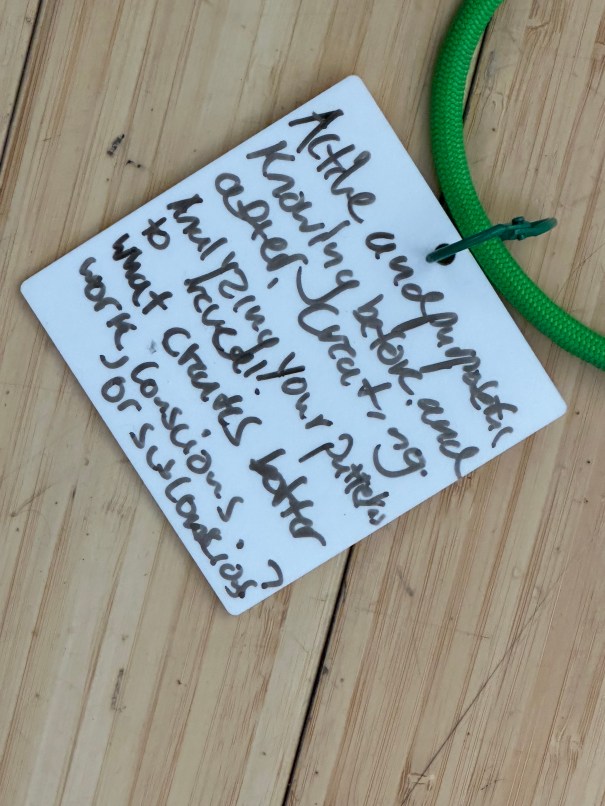 Active and purposeful
Knowing before and
after, creating.
Analyzing your patterns
to reveal.
what creates better
work, conscious
or subconscios?